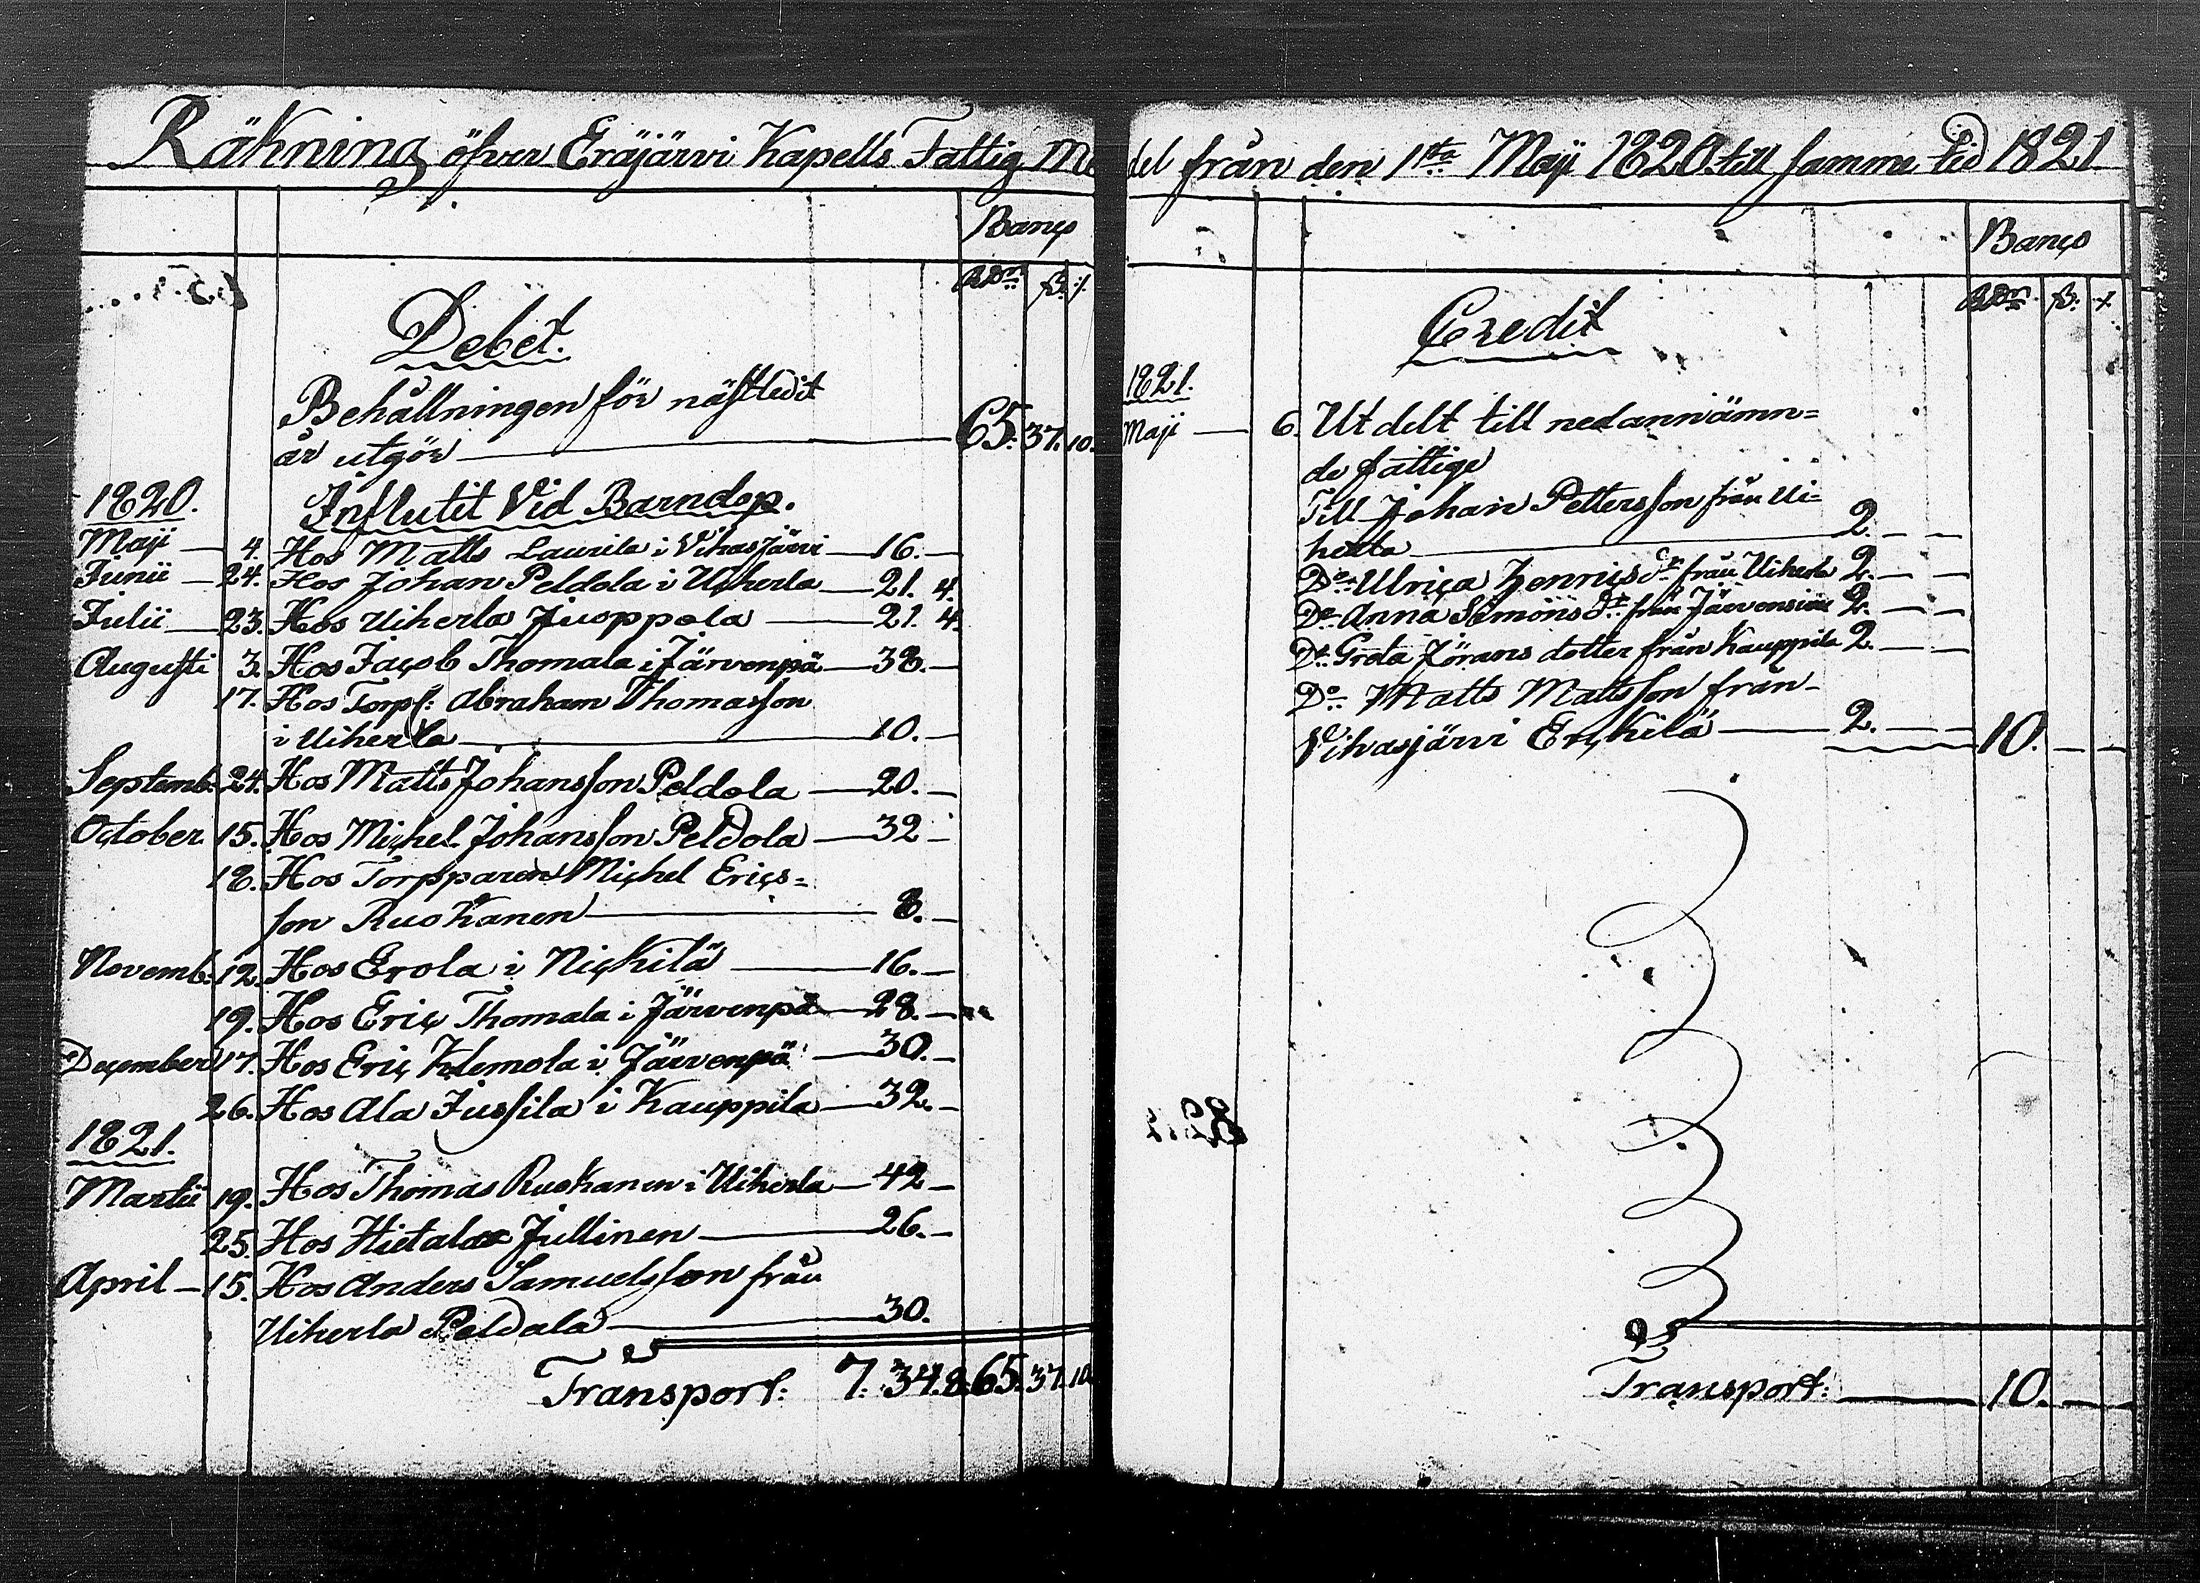 Räkning öfver Eräjärvi Kapells Fattig Medel från den 1sta Maji 1820 till samma tid 1821
Banco
RDr. ß. r.
Debet.
Behållningen för nästledit
år utgör 65. 37. 10.
1820. Influtit Vid Barndop.
Maji 4. Hos Matts Laurila i Vihasjärvi 16. —
Junii 24. Hos Johan Peldola i Uiherla 21. 4.
Julii 23. Hos Uiherla Juoppola 21. 4.
Augusti 3. Hos Jacob Thomala i Järvenpä 38. —
17. Hos Torp: Abraham Thomasson
i Uiherla 10. —
Septemb. 24. Hos Matts Johansson Peldola 20. —
October 15. Hos Michel Johansson Peldola 32 —
18. Hos Torpparen Michel Erics=
son Ruokanen 8. —
Novemb. 12. Hos Erola i Nickilä 16. —
19. Hos Eric Thomala i Järvenpä 28. —
December 17. Hos Eric Klemola i Järvenpä 30. —
26. Hos Ala Jussila i Kauppila 32. —
1821.
Martii 19. Hos Thomas Ruokanen i Uiherla 42 —
25. Hos Hietala Jullinen 26. —
April 15. Hos Anders Samuelsson från
Uiherla Peldola 30.
Transport: 7. 34. 8. 65. 37. 10.
Banco
RDr. ß. r.
Credit
1821.
Maji 6. Utdelt till nedannämn=
de fattige
Till Johan Pettersson från Ui=
herla 2. — —
Do Ulrica Henrics dr från Uiherla 2. — —
Do Anna Simons dr från Järvensivu 2. — —
Do Greta Jörans dotter från Kauppila 2. — —
Do Matts Mattsson från
Vihasjärvi Erckilä 2. — — 10. — —
Transport: 10. — —